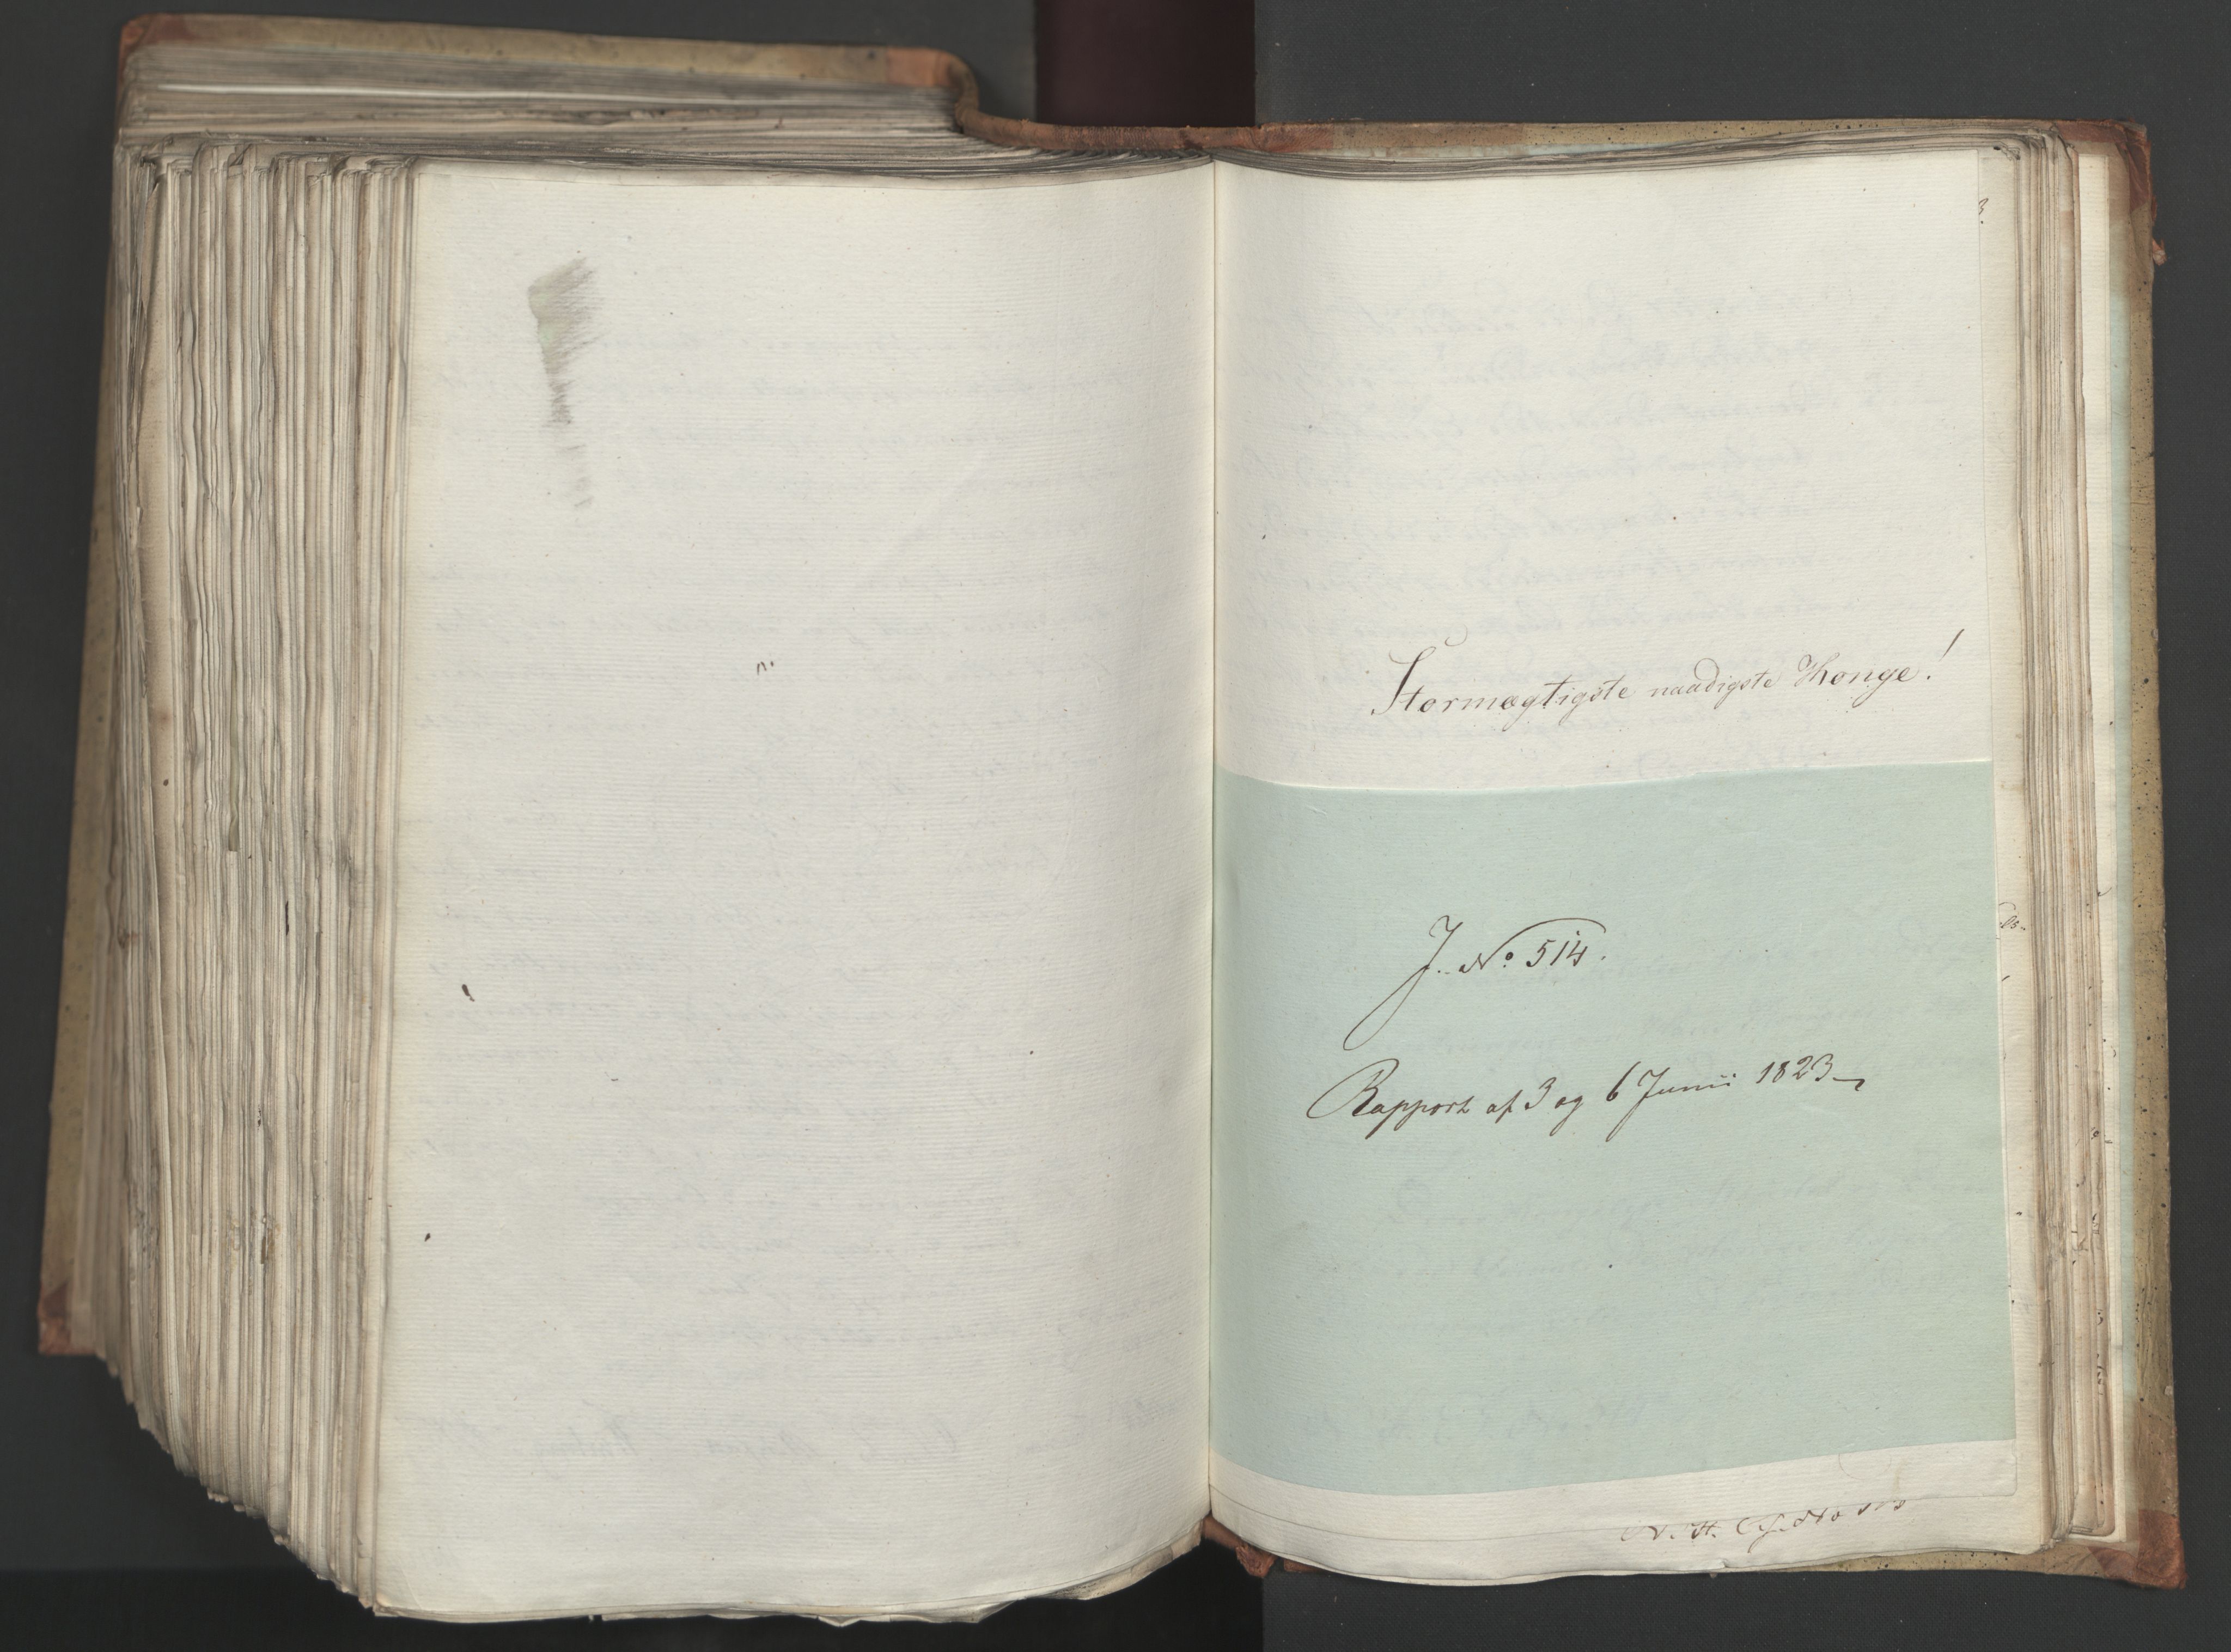 Stormægtigste naadigste Konge!
J. No 514.
Rapport af 3 og 6 Junii 1823